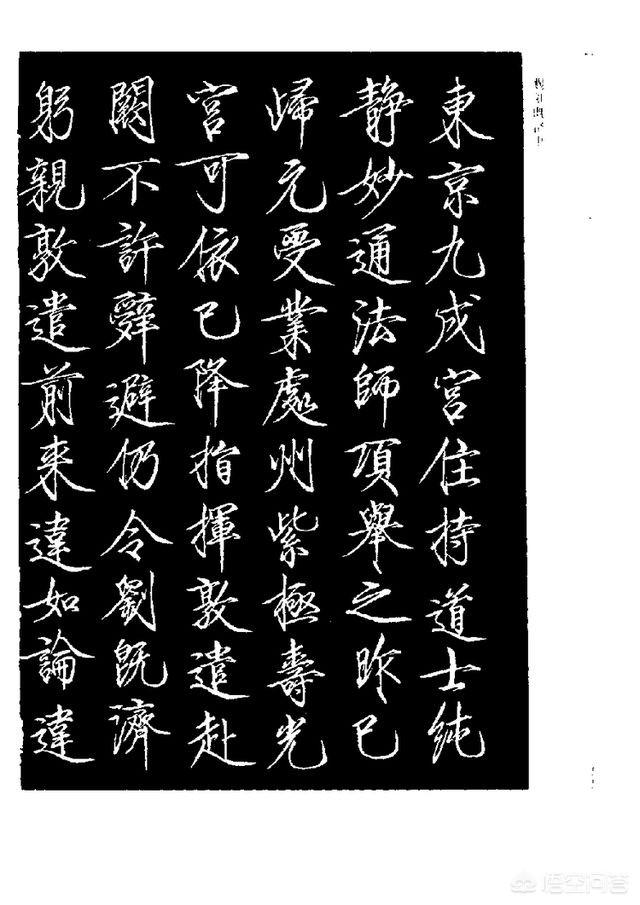 東京九成宮住持道士純
静妙通法師項舉之昨已
歸元受業處州紫極壽光
宮可依已降指揮敦遣赴
闕不許辭避仍令劉既濟
躬親敦遣前来違如論違
悟空问答